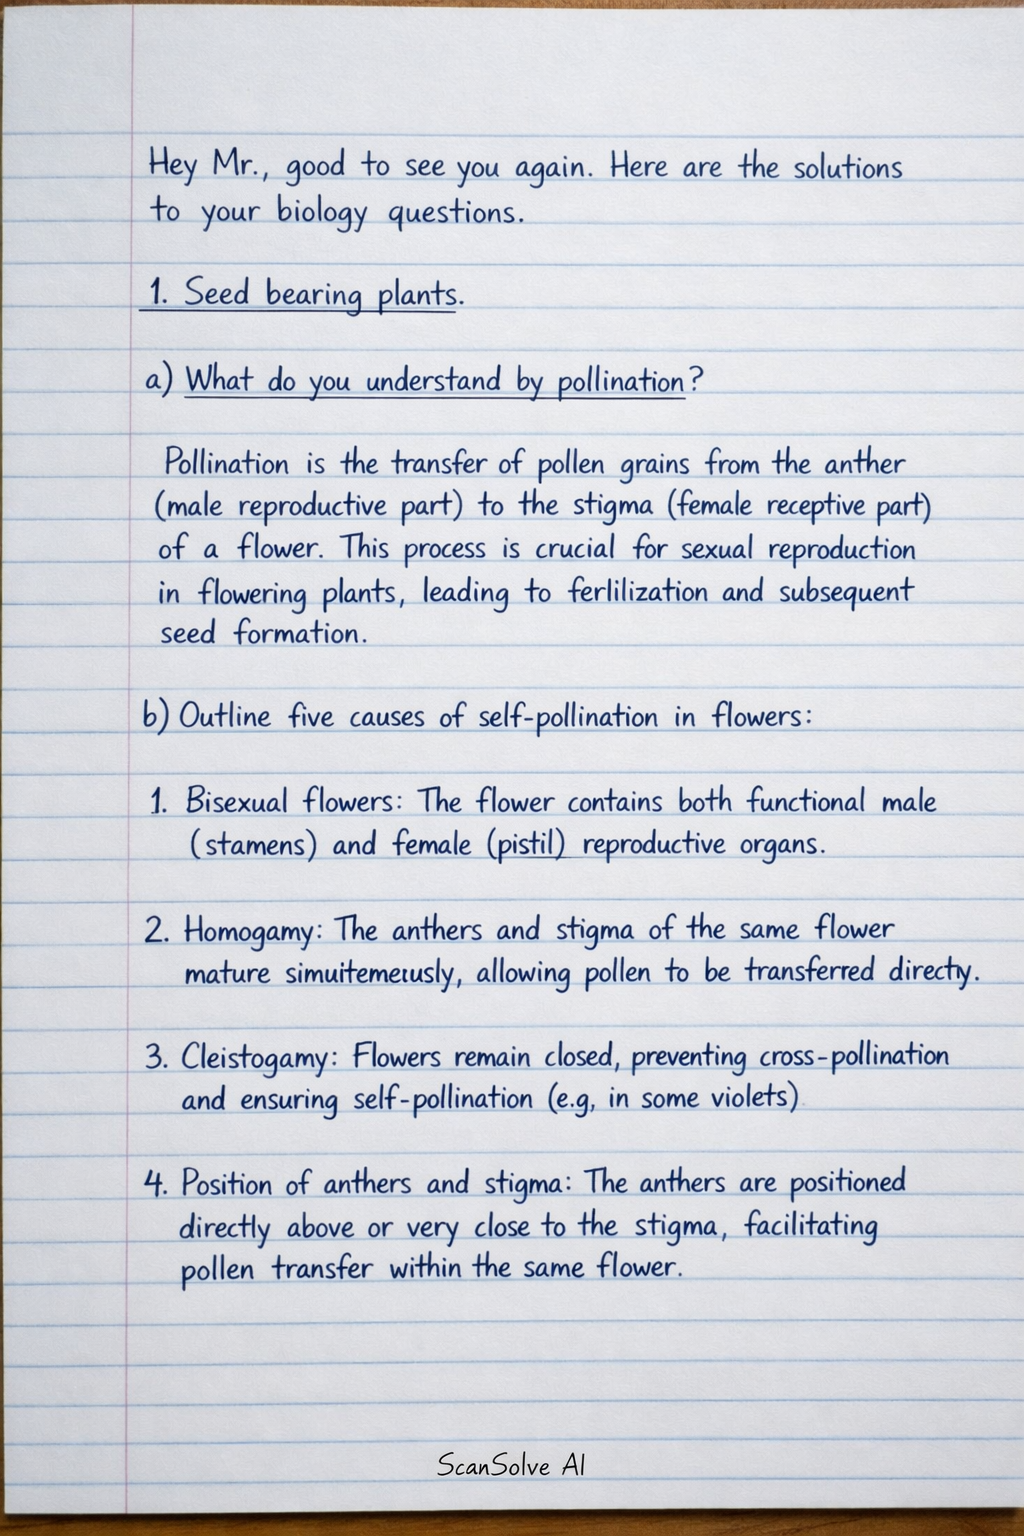 Hey Mr., good to see you again. Here are the solutions
to your biology questions.
1. Seed bearing plants.
a) What do you understand by pollination?
Pollination is the transfer of pollen grains from the anther
(male reproductive part) to the stigma (female receptive part)
of a flower. This process is crucial for sexual reproduction
in flowering plants, leading to ferlilization and subsequent
seed formation.
b) Outline five causes of self-pollination in flowers:
1. Bisexual flowers: The flower contains both functional male
(stamens) and female (pistil) reproductive organs.
2. Homogamy: The anthers and stigma of the same flower
mature allowing pollen to be transferred
3. Cleistogamy: Flowers remain closed, preventing cross-pollination
and ensuring self-pollination (e.g, in some violets)
4. Position of anthers and stigma: The anthers are positioned
directly above or very close to the stigma, facilitating
pollen transfer within the same flower.
ScanSolve AI